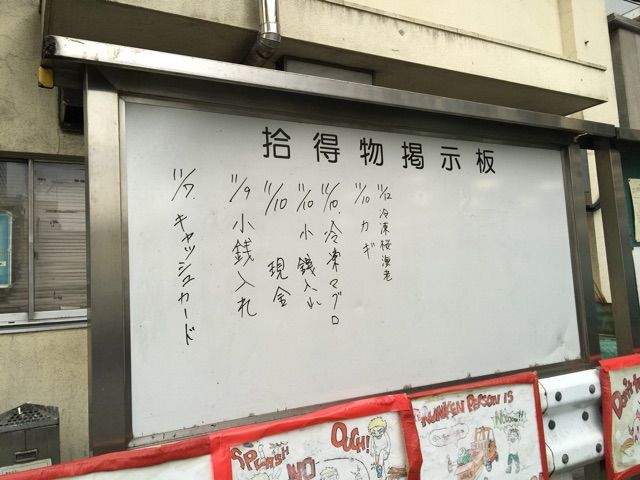 拾得物掲示板
11/12 冷凍桜海老
11/10 カギ
11/10. 冷凍マグロ
11/10 小銭入れ
11/10 現金
11/9 小銭入れ
11/7. キャッシュカード
SPLASH!
NO
OUCH!!
DRUNKEN PERSON IS
Don't